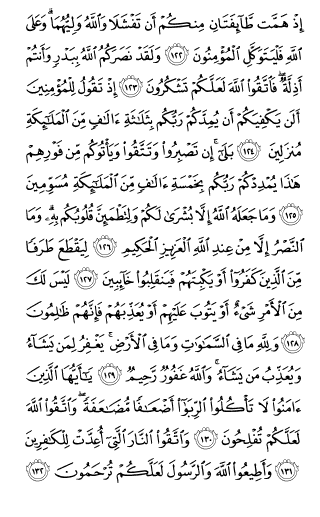 إِذْ هَمَّت طَّآئِفَتَانِ مِنكُمْ أَن تَفْشَلَا وَٱللَّهُ وَلِيُّهُمَا ۗ وَعَلَى
ٱللَّهِ فَلْيَتَوَكَّلِ ٱلْمُؤْمِنُونَ ﴿١٢٢﴾ وَلَقَدْ نَصَرَكُمُ ٱللَّهُ بِبَدْرٍ وَأَنتُمْ
أَذِلَّةٌ ۖ فَٱتَّقُوا۟ ٱللَّهَ لَعَلَّكُمْ تَشْكُرُونَ ﴿١٢٣﴾ إِذْ تَقُولُ لِلْمُؤْمِنِينَ
أَلَن يَكْفِيَكُمْ أَن يُمِدَّكُمْ رَبُّكُم بِثَلَٰثَةِ ءَالَٰفٍ مِّنَ ٱلْمَلَٰٓئِكَةِ
مُنزَلِينَ ﴿١٢٤﴾ بَلَىٰٓ ۚ إِن تَصْبِرُوا۟ وَتَتَّقُوا۟ وَيَأْتُوكُم مِّن فَوْرِهِمْ
هَٰذَا يُمْدِدْكُمْ رَبُّكُم بِخَمْسَةِ ءَالَٰفٍ مِّنَ ٱلْمَلَٰٓئِكَةِ مُسَوِّمِينَ
﴿١٢٥﴾ وَمَا جَعَلَهُ ٱللَّهُ إِلَّا بُشْرَىٰ لَكُمْ وَلِتَطْمَئِنَّ قُلُوبُكُم بِهِۦ ۗ وَمَا
ٱلنَّصْرُ إِلَّا مِنْ عِندِ ٱللَّهِ ٱلْعَزِيزِ ٱلْحَكِيمِ ﴿١٢٦﴾ لِيَقْطَعَ طَرَفًا
مِّنَ ٱلَّذِينَ كَفَرُوٓا۟ أَوْ يَكْبِتَهُمْ فَيَنقَلِبُوا۟ خَآئِبِينَ ﴿١٢٧﴾ لَيْسَ لَكَ
مِنَ ٱلْأَمْرِ شَىْءٌ أَوْ يَتُوبَ عَلَيْهِمْ أَوْ يُعَذِّبَهُمْ فَإِنَّهُمْ ظَٰلِمُونَ
﴿١٢٨﴾ وَلِلَّهِ مَا فِى ٱلسَّمَٰوَٰتِ وَمَا فِى ٱلْأَرْضِ ۚ يَغْفِرُ لِمَن يَشَآءُ
وَيُعَذِّبُ مَن يَشَآءُ ۚ وَٱللَّهُ غَفُورٌ رَّحِيمٌ ﴿١٢٩﴾ يَٰٓأَيُّهَا ٱلَّذِينَ
ءَامَنُوا۟ لَا تَأْكُلُوا۟ ٱلرِّبَوٰٓا۟ أَضْعَٰفًا مُّضَٰعَفَةً ۖ وَٱتَّقُوا۟ ٱللَّهَ
لَعَلَّكُمْ تُفْلِحُونَ ﴿١٣٠﴾ وَٱتَّقُوا۟ ٱلنَّارَ ٱلَّتِىٓ أُعِدَّتْ لِلْكَٰفِرِينَ
﴿١٣١﴾ وَأَطِيعُوا۟ ٱللَّهَ وَٱلرَّسُولَ لَعَلَّكُمْ تُرْحَمُونَ ﴿١٣٢﴾